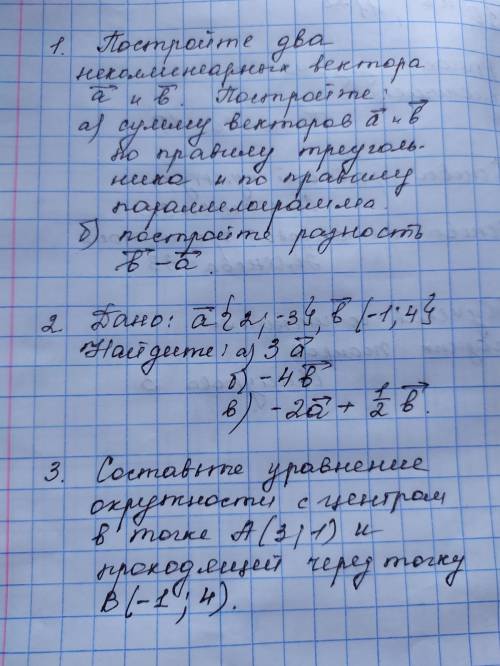 1. Постройте два
неколлинеарных вектора
a и b. Постройте:
а) сумму векторов a и b
по правилу треуголь-
ника и по правилу
параллелограмма.
б) постройте разность
b - a.
2 Дано: a {2; -3}, b {-1; 4}
Найдите: а) 3a
б) -4b
в) -2a + 1/2 b.
3. Составьте уравнение
окружности с центром
в точке А(3; 1) и
проходящей через точку
В(-1; 4).